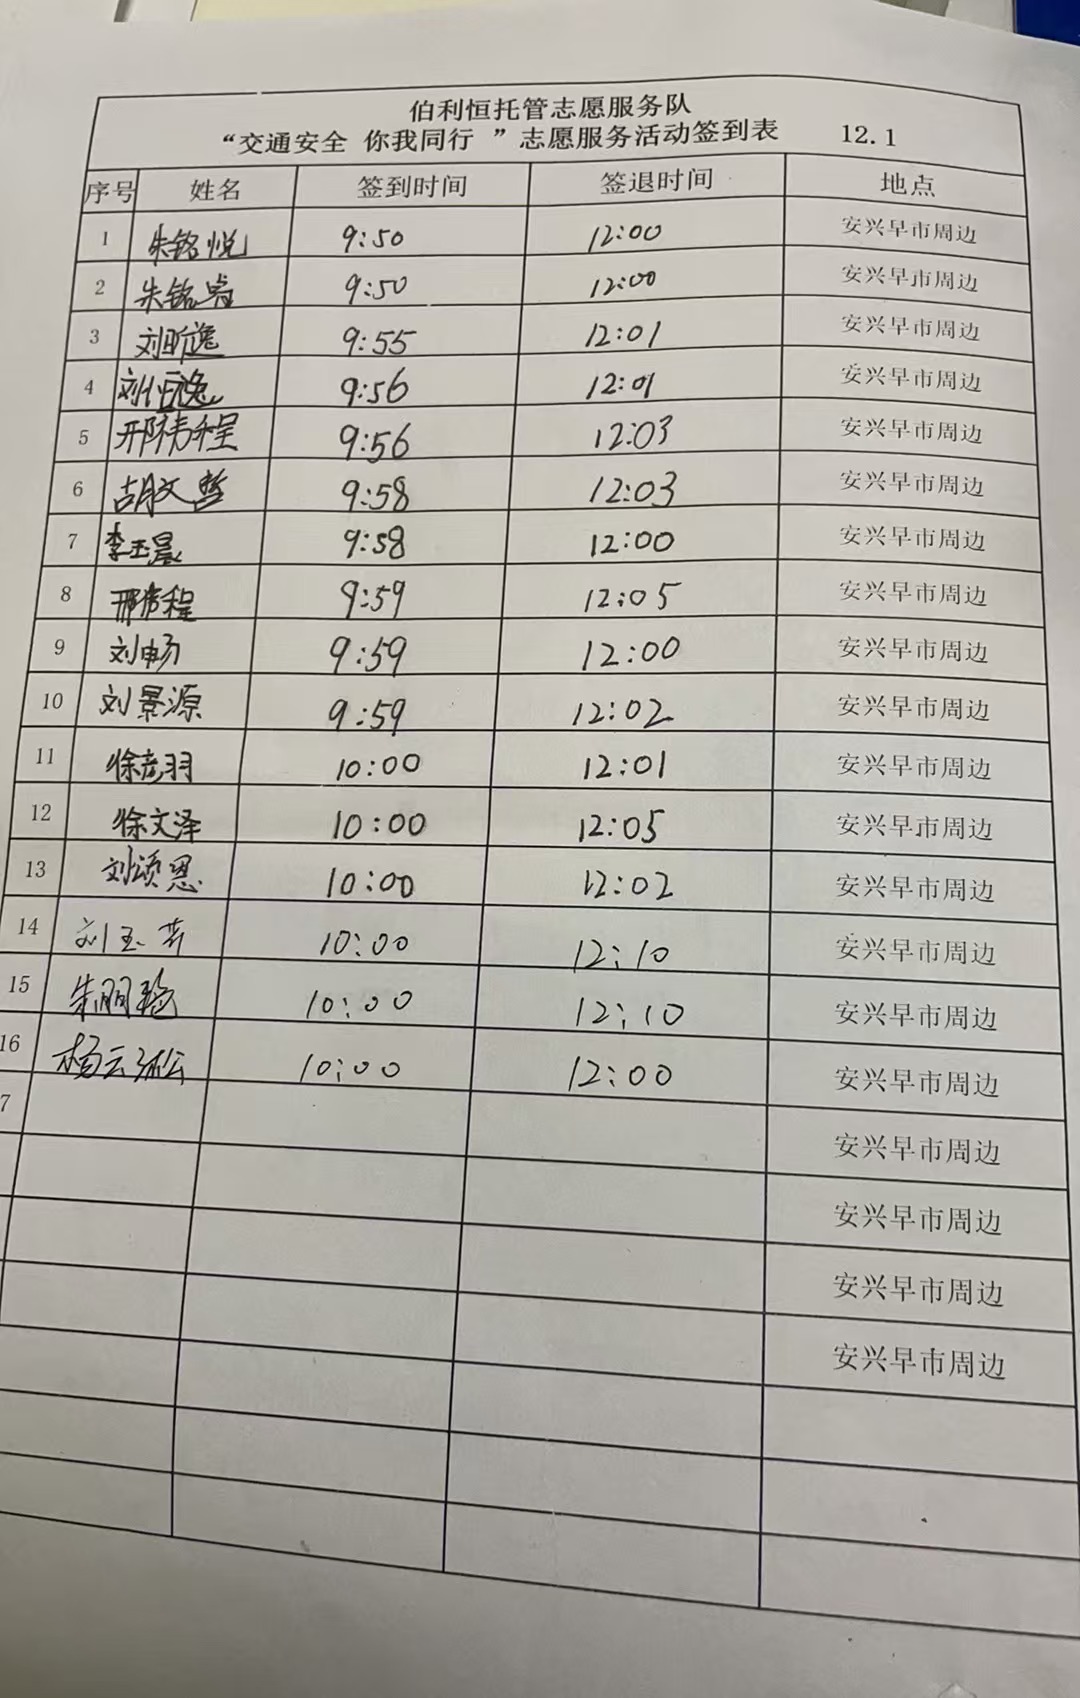 伯利恒托管志愿服务队
“交通安全 你我同行 ”志愿服务活动签到表 12.1
序号 姓名 签到时间 签退时间 地点
1 朱铭悦 9:50 12:00 安兴早市周边
2 朱铭睿 9:50 12:00 安兴早市周边
3 刘昕逸 9:55 12:01 安兴早市周边
4 刘恒逸 9:56 12:01 安兴早市周边
5 邢祎程 9:56 12:03 安兴早市周边
6 胡文哲 9:58 12:03 安兴早市周边
7 李玉晨 9:58 12:00 安兴早市周边
8 邢程 9:59 12:05 安兴早市周边
9 刘畅 9:59 12:00 安兴早市周边
10 刘景源 9:59 12:02 安兴早市周边
11 徐彦羽 10:00 12:01 安兴早市周边
12 徐文泽 10:00 12:05 安兴早市周边
13 刘颂恩 10:00 12:02 安兴早市周边
14 刘玉芳 10:00 12:10 安兴早市周边
15 朱丽艳 10:00 12:10 安兴早市周边
16 杨云淞 10:00 12:00 安兴早市周边
7 安兴早市周边
安兴早市周边
安兴早市周边
安兴早市周边